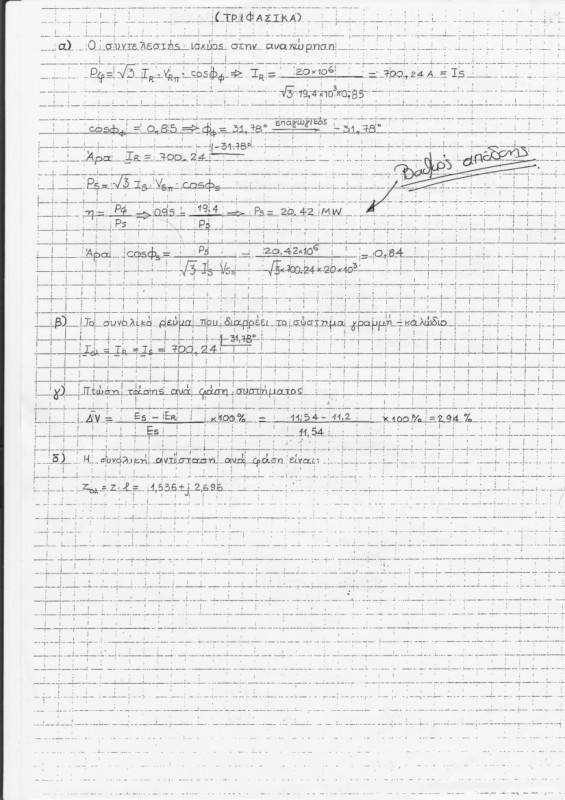 (ΤΡΙΦΑΣΙΚΑ)
α) Ο συντελεστής ισχύος στην αναχώρηση
Pφ = √3 I_R · V_Rπ · cosφφ ⇒ I_R = 20×10⁶ / √3·19,4×10³×0,85 = 700,24 A = I_S
cosφφ = 0,85 ⇒ φφ = 31,78° επαγωγικός → -31,78°
Άρα I_R = 700,24 |-31,78°
Βαθμός απόδοσης
P_S = √3 I_S · V_Sπ · cosφ_S
η = Pφ / P_S ⇒ 0,95 = 19,4 / P_S ⇒ P_S = 20,42 MW
Άρα cosφ_S = P_S / √3 I_S V_Sπ = 20,42×10⁶ / √3×700,24×20×10³ = 0,84
β) Το συνολικό ρεύμα που διαρρέει το σύστημα γραμμή-καλώδιο
I_ολ = I_R = I_S = 700,24 |-31,78°
γ) Πτώση τάσης ανά φάση συστήματος
ΔV = E_S - E_R / E_S ×100% = 11,54 - 11,2 / 11,54 ×100% = 2,94 %
δ) Η συνολική αντίσταση ανά φάση είναι:
Z_ολ = Z·ℓ = 1,536+j 2,696